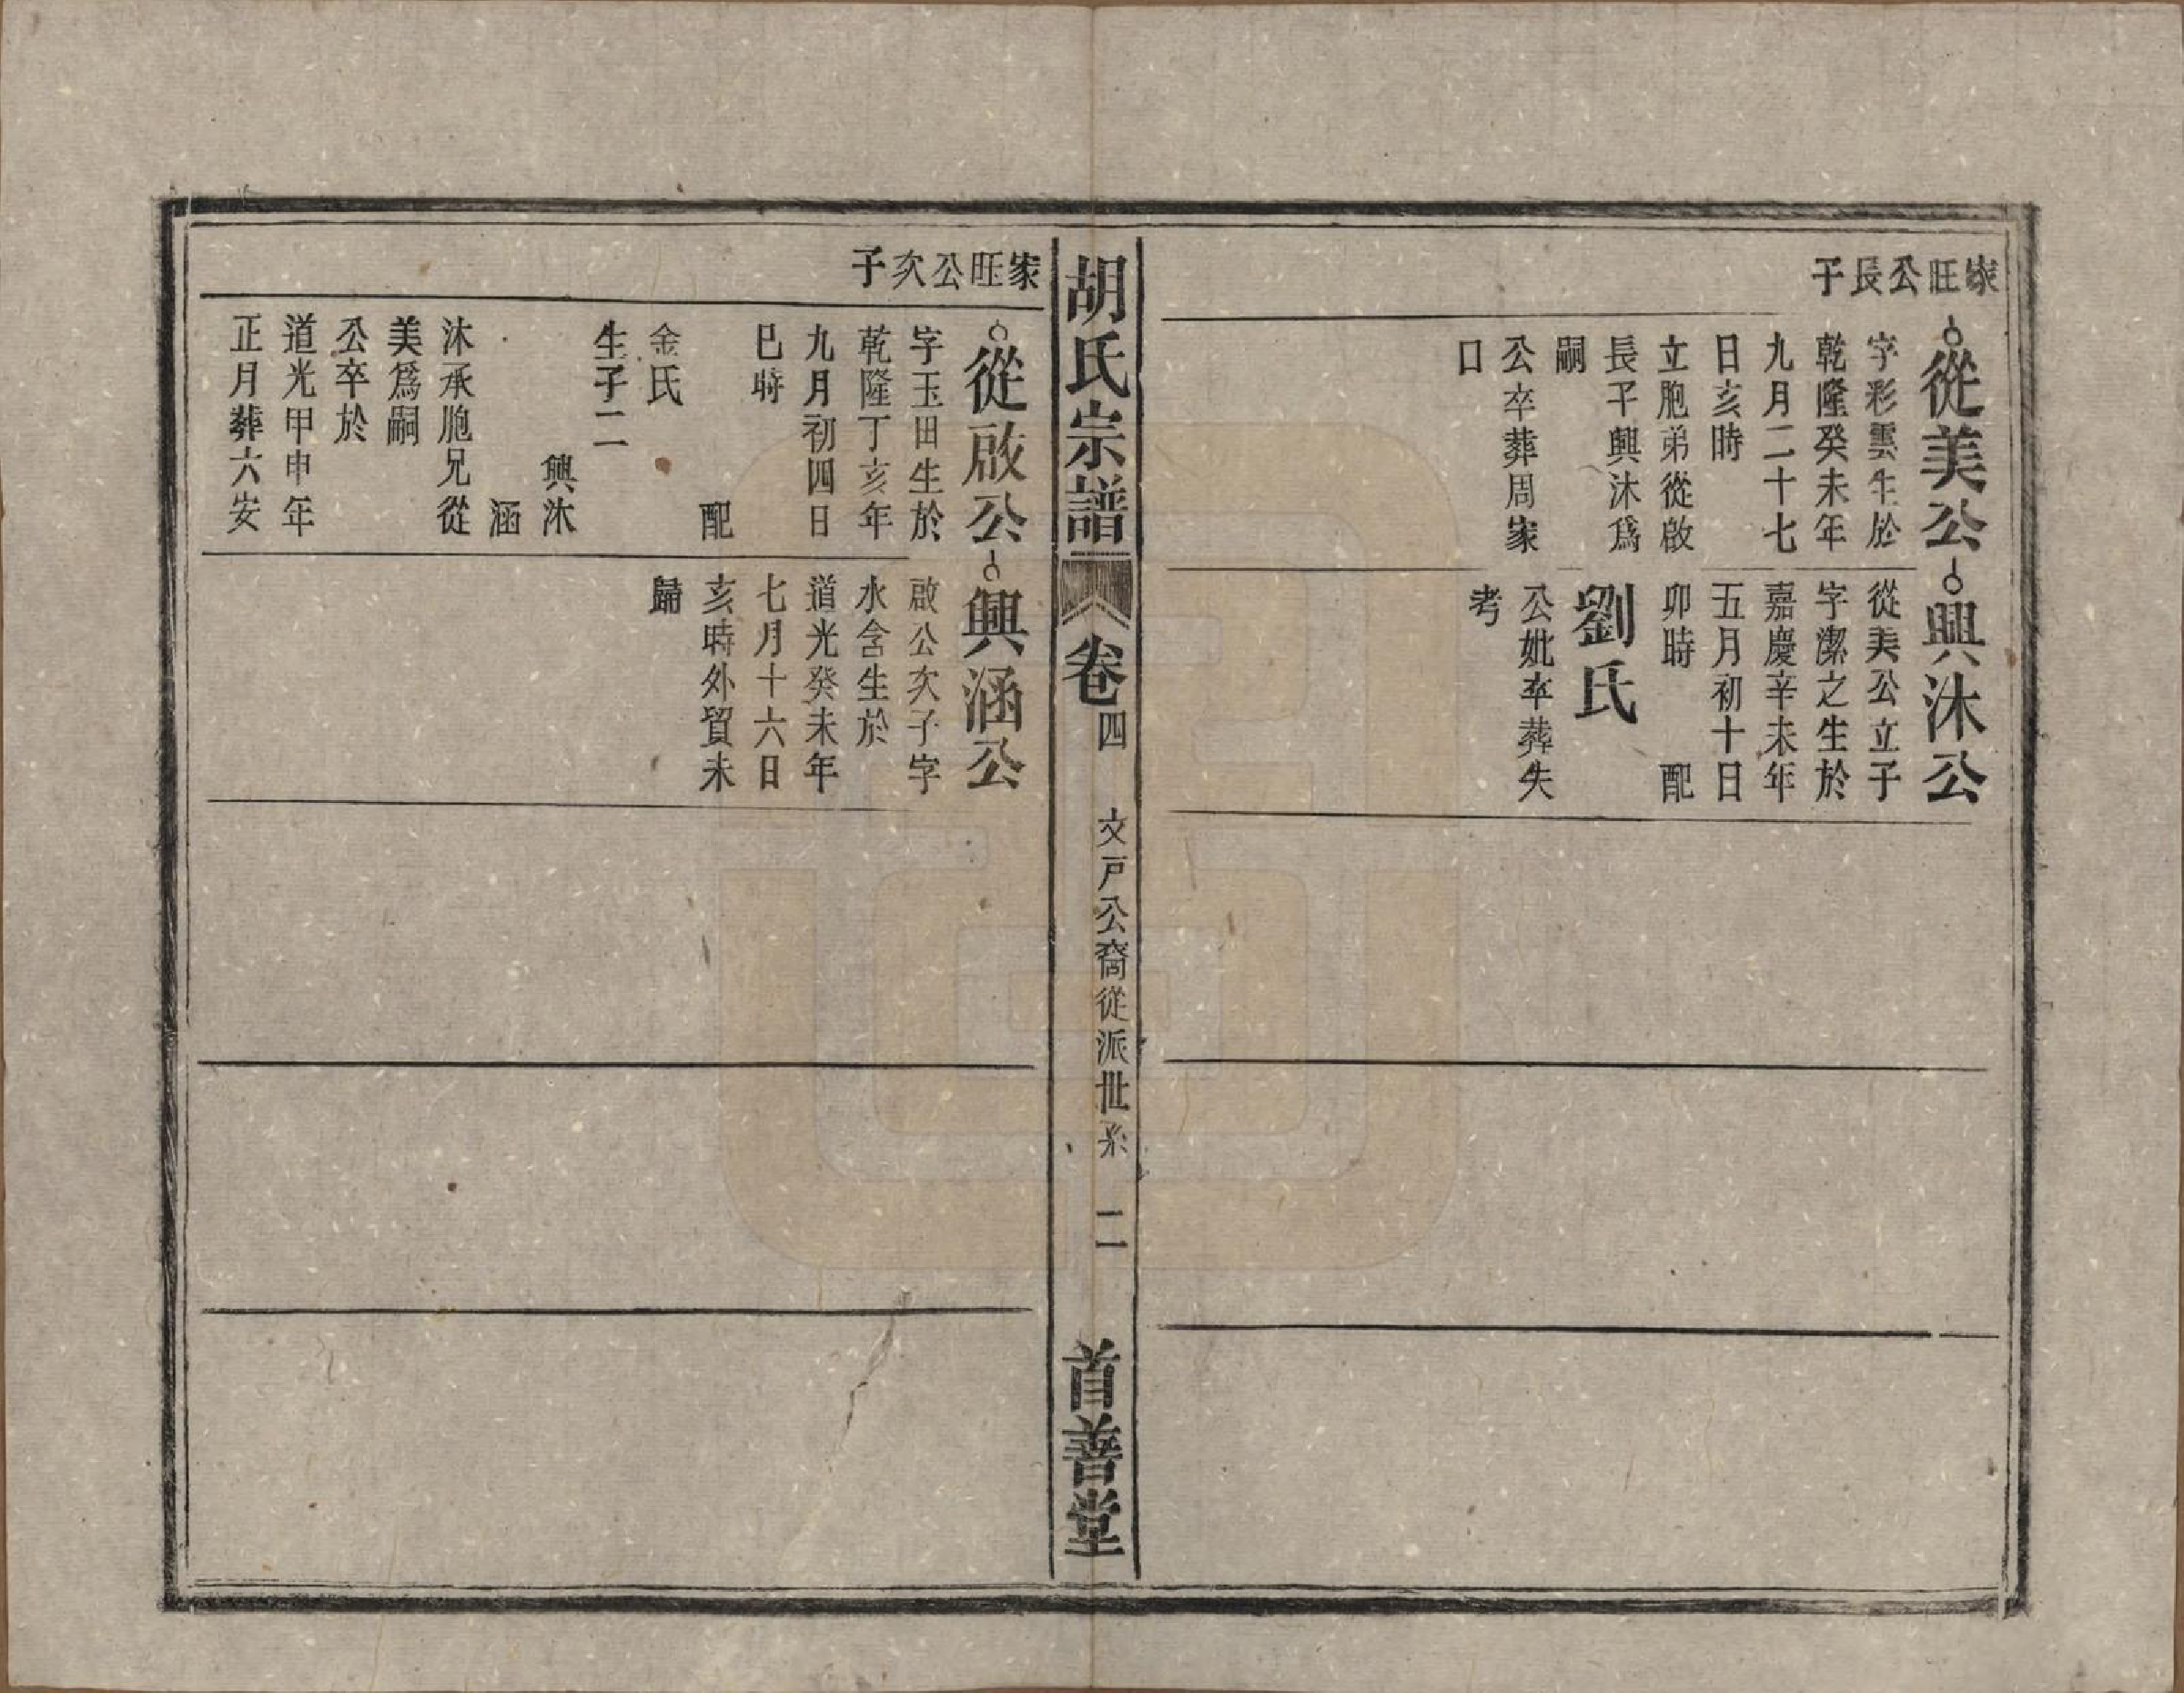 家旺公長子
從美公
字彩雲生於
乾隆癸未年
九月二十七
日亥時
立胞弟從啟
長子興沐爲
嗣
公卒葬周家
口
興沐公
從美公立子
字潔之生於
嘉慶辛未年
五月初十日
卯時 配
劉氏
公妣卒葬失
考
胡氏宗譜 卷四 文戸公裔從派世系 二 首善堂
家旺公次子
從啟公
字玉田生於
乾隆丁亥年
九月初四日
巳時
配
金氏
生子二
興沐
涵
沐承胞兄從
美爲嗣
公卒於
道光甲申年
正月葬六安
興涵公
啟公次子字
水含生於
道光癸未年
七月十六日
亥時外貿未
歸